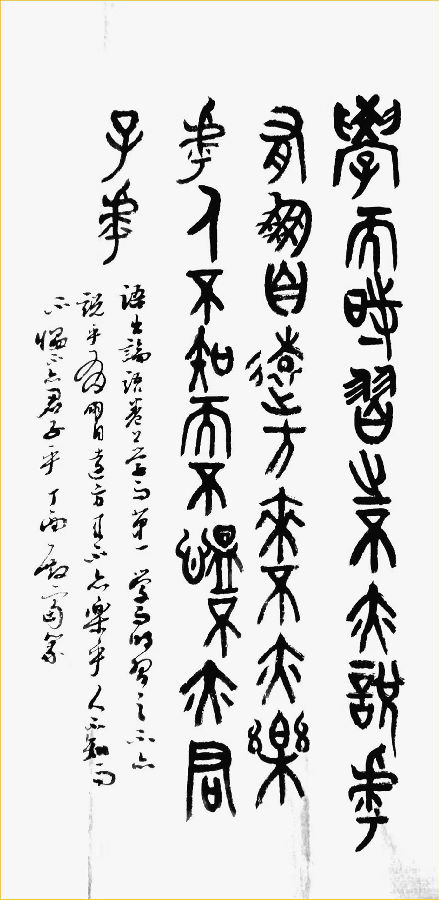 學而時習之不亦說乎
有朋自遠方來不亦樂
乎人不知而不慍不亦君
子乎
語出論語卷學而第一 學而時習之不亦
說乎有朋自遠方來不亦樂乎人不知而
不慍不亦君子乎 丁酉 篆